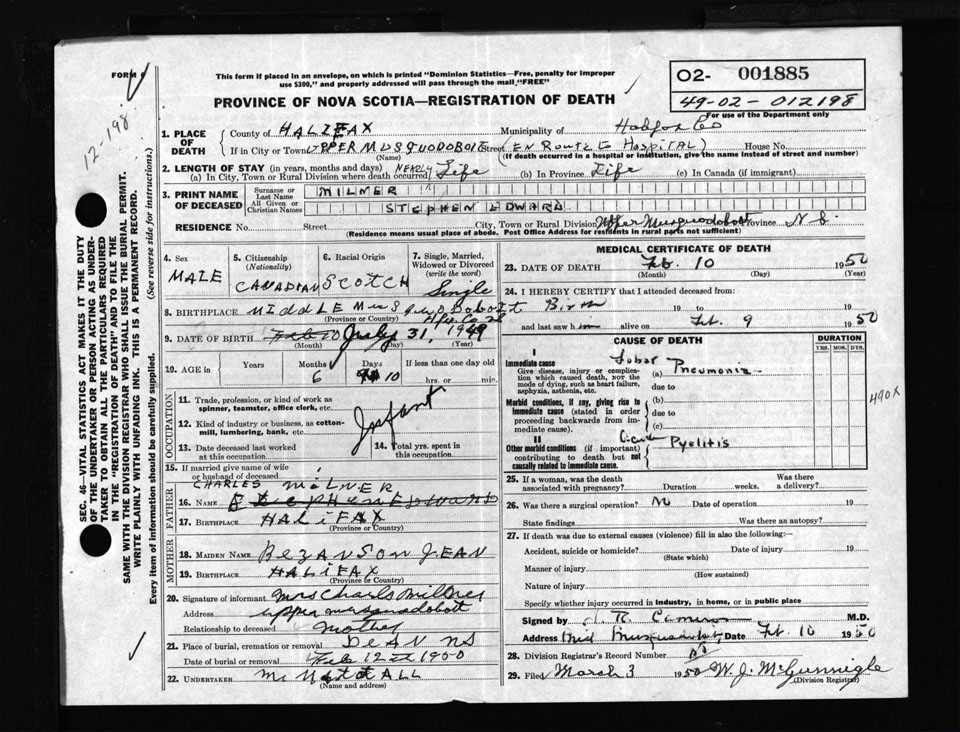 FORM
This form if placed in an envelope, on which is printed "Dominion Statistics—Free, penalty for improper
use $300," and properly addressed will pass through the mail "FREE"
O2- 001885
49-02-012198
For use of the Department only
PROVINCE OF NOVA SCOTIA—REGISTRATION OF DEATH
12-198
1. PLACE OF DEATH
County of HALIFAX
Municipality of Halifax Co
If in City or Town UPPER MUSQUODOBOIT Street (EN ROUTE to HOSPITAL) House No.
(Name) (If death occurred in a hospital or institution, give the name instead of street and number)
2. LENGTH OF STAY (in years, months and days)
(a) In City, Town or Rural Division where death occurred NEARLY Life (b) In Province Life (c) In Canada (if immigrant)
3. PRINT NAME OF DECEASED
Surname or Last Name MILNER
All Given or Christian Names STEPHEN EDWARD
RESIDENCE No. Street City, Town or Rural Division Upper Musquodoboit Province N S.
(Residence means usual place of abode. Post Office Address for residents in rural parts not sufficient)
4. Sex
MALE
5. Citizenship
(Nationality)
CANADIAN
6. Racial Origin
SCOTCH
7. Single, Married,
Widowed or Divorced
(write the word)
Single
8. BIRTHPLACE MIDDLE Musquodoboit
(Province or Country) Hfx Co
9. DATE OF BIRTH July 31, 1949
(Month) (Day) (Year)
10. AGE in
Years
Months
6
Days
10
If less than one day old
hrs. or min.
OCCUPATION
11. Trade, profession, or kind of work as
spinner, teamster, office clerk, etc.
12. Kind of industry or business, as cotton-
mill, lumbering, bank, etc.
Infant
13. Date deceased last worked
at this occupation
14. Total yrs. spent in
this occupation
15. If married give name of wife
or husband of deceased
FATHER
CHARLES MILNER
16. NAME STEPHEN EDWARD
17. BIRTHPLACE HALIFAX
(Province or Country)
MOTHER
18. MAIDEN NAME BEZANSON JEAN
19. BIRTHPLACE HALIFAX
(Province or Country)
20. Signature of informant Mrs Charls Millner
Address upper musquodobott
Relationship to deceased Mother
21. Place of burial, cremation or removal DEAN NS
Date of burial or removal Feb 12 1950
22. UNDERTAKER
(Name and address)
MEDICAL CERTIFICATE OF DEATH
23. DATE OF DEATH Feb. 10 1950
(Month) (Day) (Year)
24. I HEREBY CERTIFY that I attended deceased from:
Birth 19 to 19
and last saw him alive on Feb. 9 1950
CAUSE OF DEATH
DURATION
YRS. MOS. DYS.
I
Immediate cause
Give disease, injury or complica-
tion which caused death, NOT the
mode of dying, such as heart failure,
asphyxia, asthenia, etc.
Lobar
(a) Pneumonia
due to
Morbid conditions, if any, giving rise to
immediate cause (stated in order
proceeding backwards from im-
mediate cause).
(b)
due to
(c)
490X
II
Other morbid conditions (if important)
contributing to death but not
causally related to immediate cause.
Acute
Pyelitis
25. If a woman, was the death
associated with pregnancy? Duration weeks. Was there
a delivery?
26. Was there a surgical operation? Date of operation 19
State findings Was there an autopsy?
27. If death was due to external causes (violence) fill in also the following:—
Accident, suicide or homicide? Date of injury 19
(State which)
Manner of injury
(How sustained)
Nature of injury
Specify whether injury occurred in industry, in home, or in public place
Signed by M.D.
Address Mid Musquodoboit, Date Feb. 10 1950
28. Division Registrar's Record Number
29. Filed March 3 1950 W. J. McGunnigle
(Division Registrar)
SEC. 46—VITAL STATISTICS ACT MAKES IT THE DUTY
OF THE UNDERTAKER OR PERSON ACTING AS UNDER-
TAKER TO OBTAIN ALL THE PARTICULARS REQUIRED
IN THE "REGISTRATION OF DEATH" AND TO FILE THE
SAME WITH THE DIVISION REGISTRAR WHO SHALL ISSUE THE BURIAL PERMIT.
WRITE PLAINLY WITH UNFADING INK. THIS IS A PERMANENT RECORD.
Every item of information should be carefully supplied. (See reverse side for instructions.)